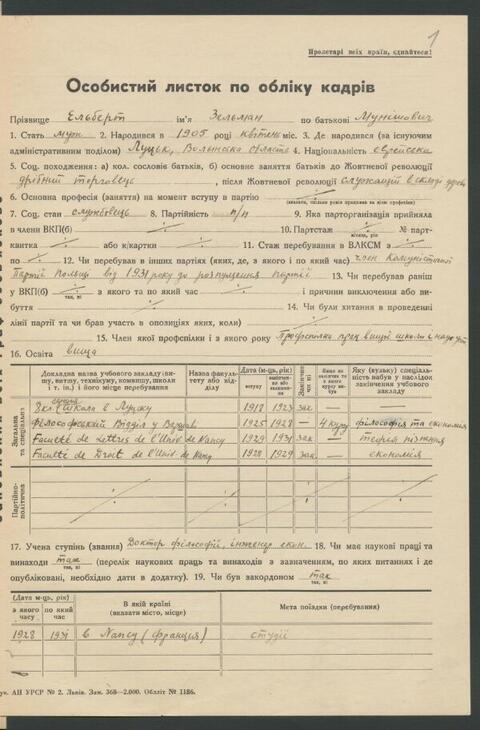 1
Пролетарі всіх країн, єднайтеся!
Особистий листок по обліку кадрів
Прізвище Ельберт ім'я Зельман по батькові Мунішович
1. Стать муж 2. Народився в 1905 році квітень міс. 3. Де народився (за існуючим
адміністративним поділом) Луцьк, Волынска область 4. Національність еврейська
5. Соц. походження: а) кол. сословіє батьків, б) основне заняття батьків до Жовтневої революції
дрібний торговець, після Жовтневої революції служащий в складі
6. Основна професія (заняття) на момент вступу в партію
7. Соц. стан службовець 8. Партійність п/п 9. Яка парторганізація прийняла
в члени ВКП(б) 10. Партстаж № парт-
місяць, рік
квитка або к/картки 11. Стаж перебування в ВЛКСМ з
по 12. Чи перебував в інших партіях (яких, де, з якого і по який час) член Комуністичної
Партії Польщі від 1931 року до розпущення партії 13. Чи перебував раніш
у ВКП(б) з якого та по який час і причини виключення або ви-
так, ні
буття 14. Чи були хитання в проведенні
лінії партії та чи брав участь в опозиціях яких, коли)
15. Член якої профспілки і з якого року Профспілка прац. вищої школи і
16. Освіта вища
Загальна та спеціальна
Партійно-політична
Докладна назва учбового закладу (ви-
шу, втузу, технікуму, комвишу, школи
і т. ін.) і його місце перебування
Назва факуль-
тету або від-
ділу
Дата (м-ць, рік)
вступу
Закінчив чи ні
Яку (вузьку) спеціаль-
ність набув у наслідок
закінчення учбового
закладу
школа в Луцку 1918 1923 зак — —
Філософський Відділ у Варшаві 1925 1928 — 4 курс філософія та економія
Faculté de Lettres de l'Univ. de Nancy 1929 1931 зак — теорія пізнання
Faculté de Droit de l'Univ. de Nancy 1928 1929 зак — економія
17. Учена ступінь (звання) Доктор філософії, інженер екон. 18. Чи має наукові праці та
винаходи так (перелік наукових праць та винаходів з зазначенням, по яких питаннях і де
так, ні
опубліковані, необхідно дати в додатку). 19. Чи був закордоном так
так, ні
Дата (м-ць, рік)
з якого часу
по який час
В якій країні
(вказати місто, місце)
Мета поїздки (перебування)
1928 1931 в Nancy (Франция) студії
ук. АН УРСР № 2. Львів. Зам. 368—2.000. Обліт № 1186.